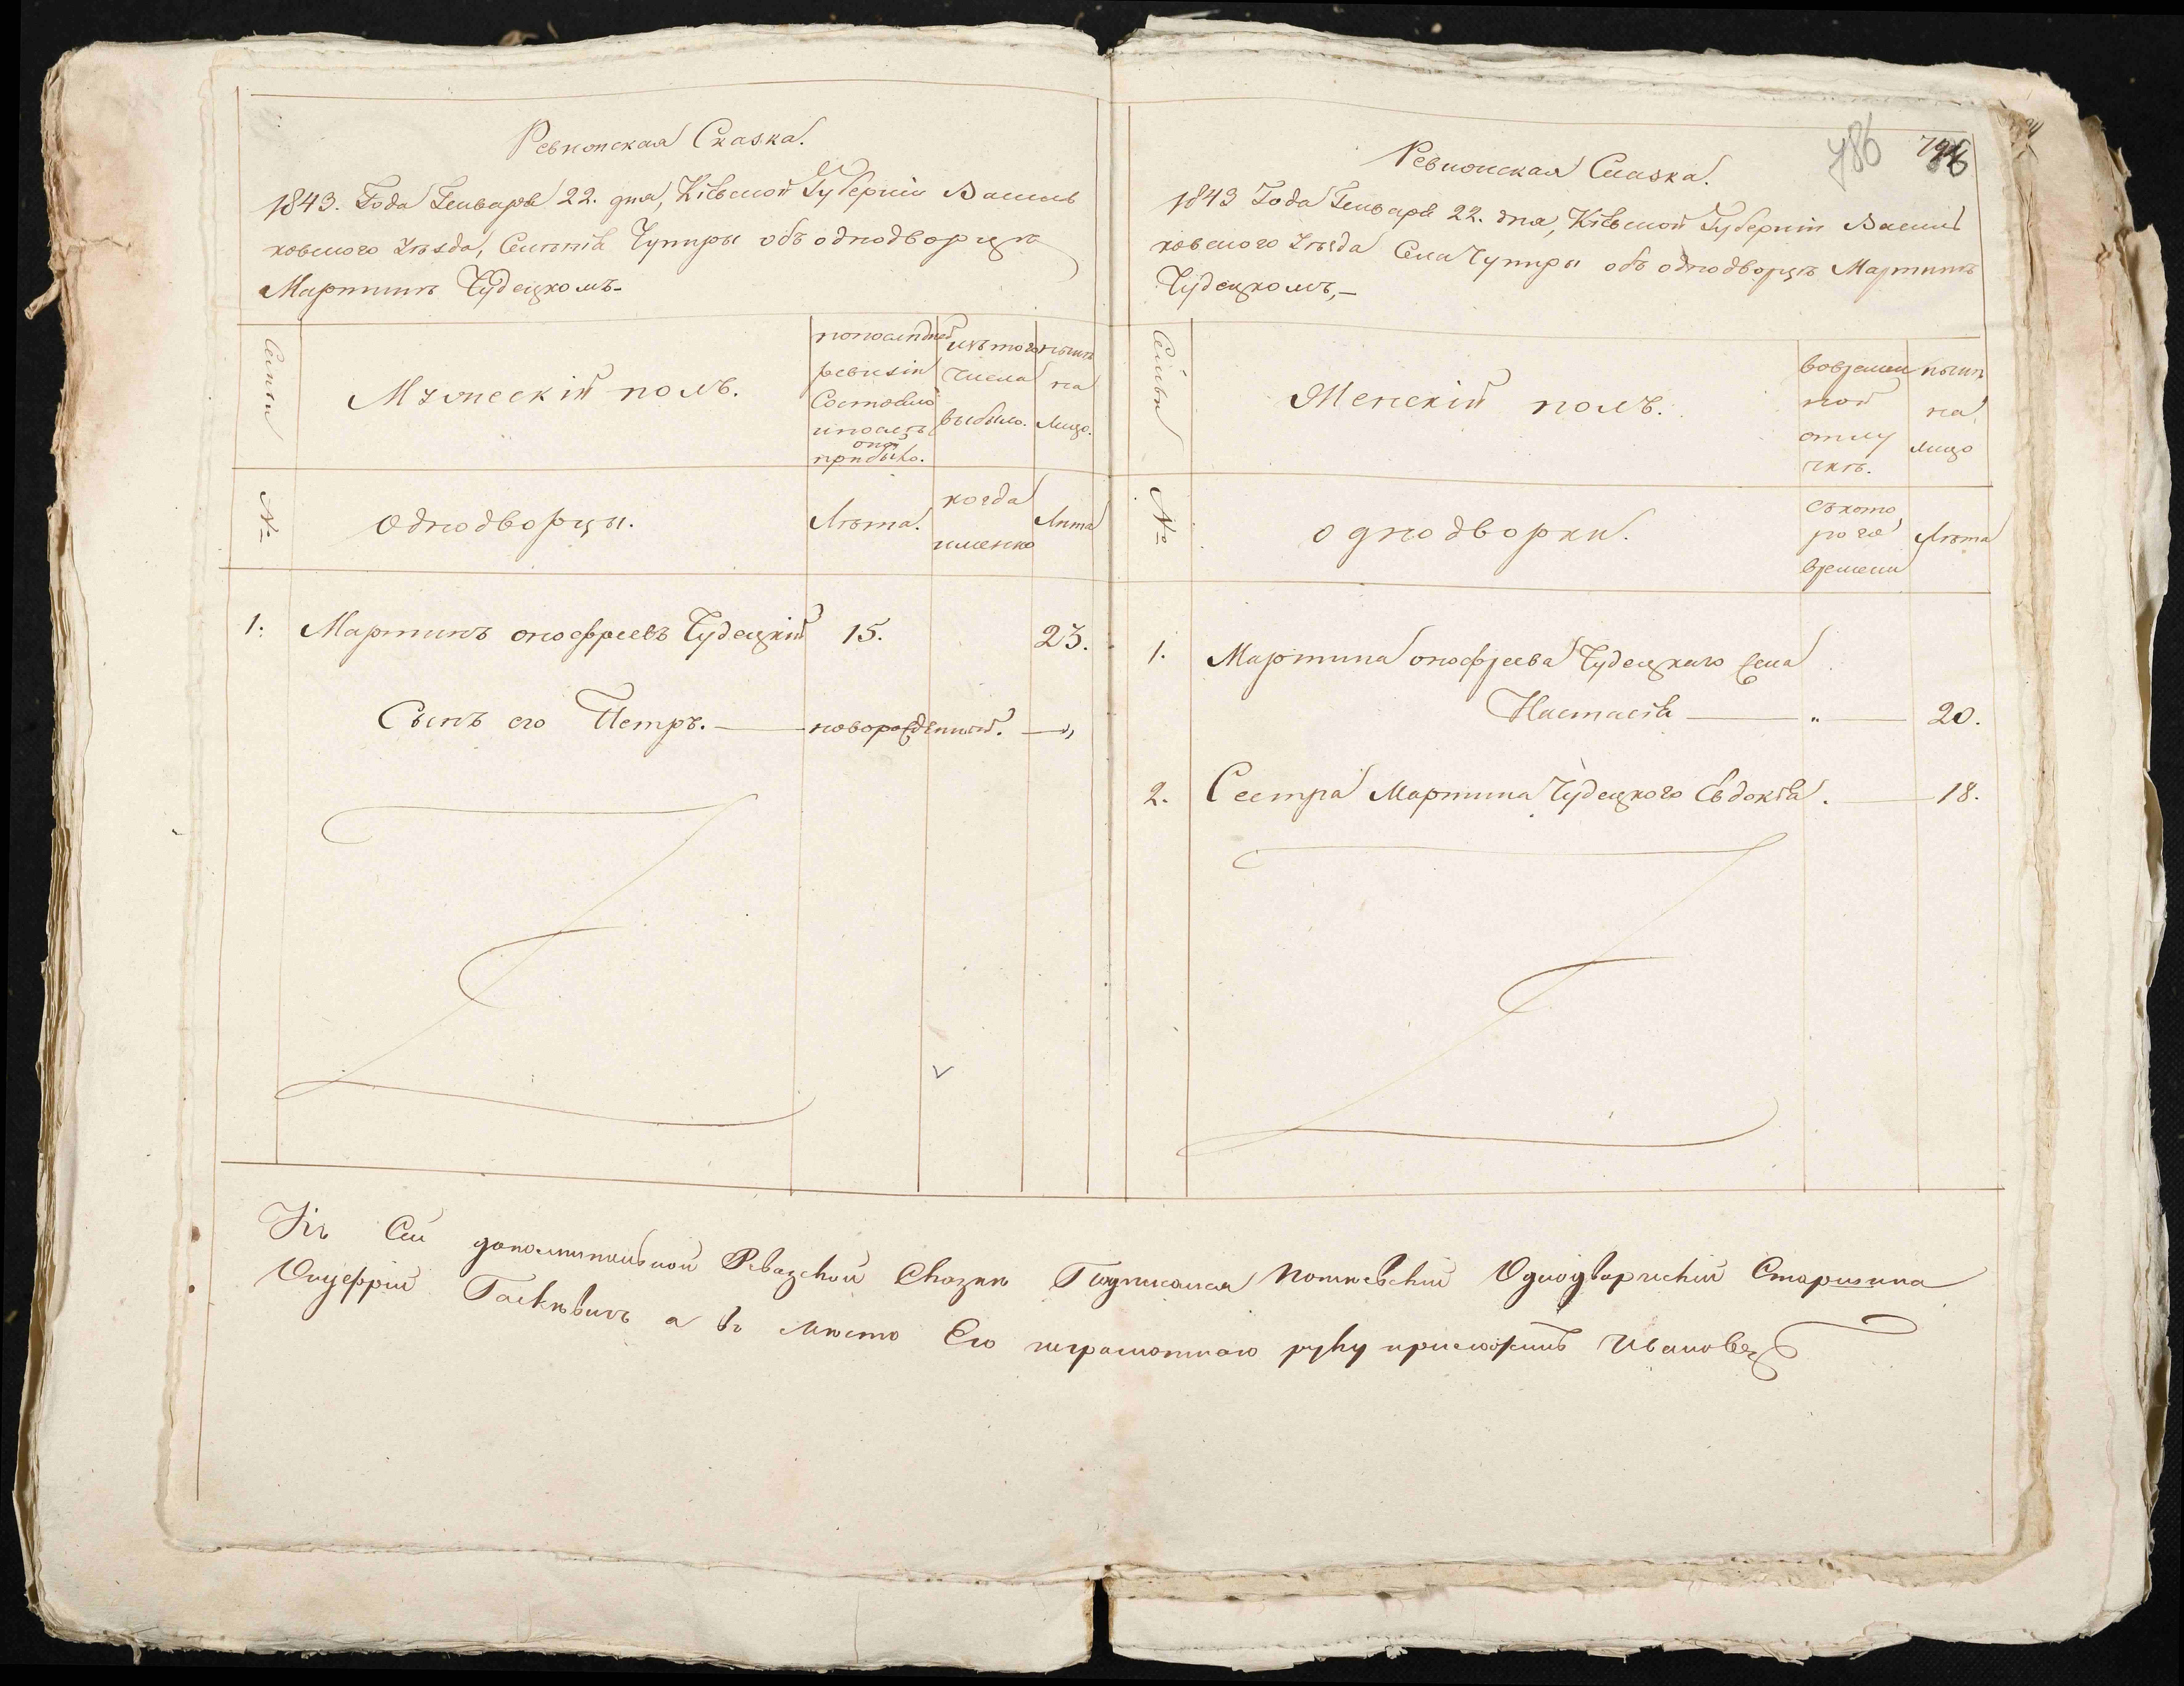 Ревизская Сказка.
1843. Года Генваря 22. дня, Кіевской Губерніи Василь
ковского Уѣзда, Селенія Чупиры объ однодворцѣ
Мартинѣ Чудецкомъ
Семьи
Мужескій полъ.
попослѣдней
ревизіи
Состояло
ипослѣ
оной
прибыло.
изъ того
числа
выбыло.
нынѣ
на
Лицо.
№
Однодворцы.
Лѣта.
когда
именно
Лѣта
1. Мартинъ онофреевъ Чудецкій 15. 23.
Сынъ его Петръ. — новорожденный. — „
786
Ревизская Сказка.
1843 Года Генваря 22. дня, Кіевской Губерніи Василь
ковского Уѣзда Села Чупиры объ однодворцѣ Мартинѣ
Чудецкомъ, —
Семьи
Женскій полъ.
вовремен
ной
отлу
чкѣ.
нынѣ
на
лицо
№
однодворки.
съ кото
рого
времени
Лѣта
1. Мартина онофреева Чудецкаго жена
Настасія — „ — 20.
2. Сестра Мартина Чудецкого Евдокія. — 18.
Къ Сей дополнительной Ревизской Сказки Подписался Однодворческій Старшина
Онуфрій а въ мѣсто Его неграмотного руку приложилъ